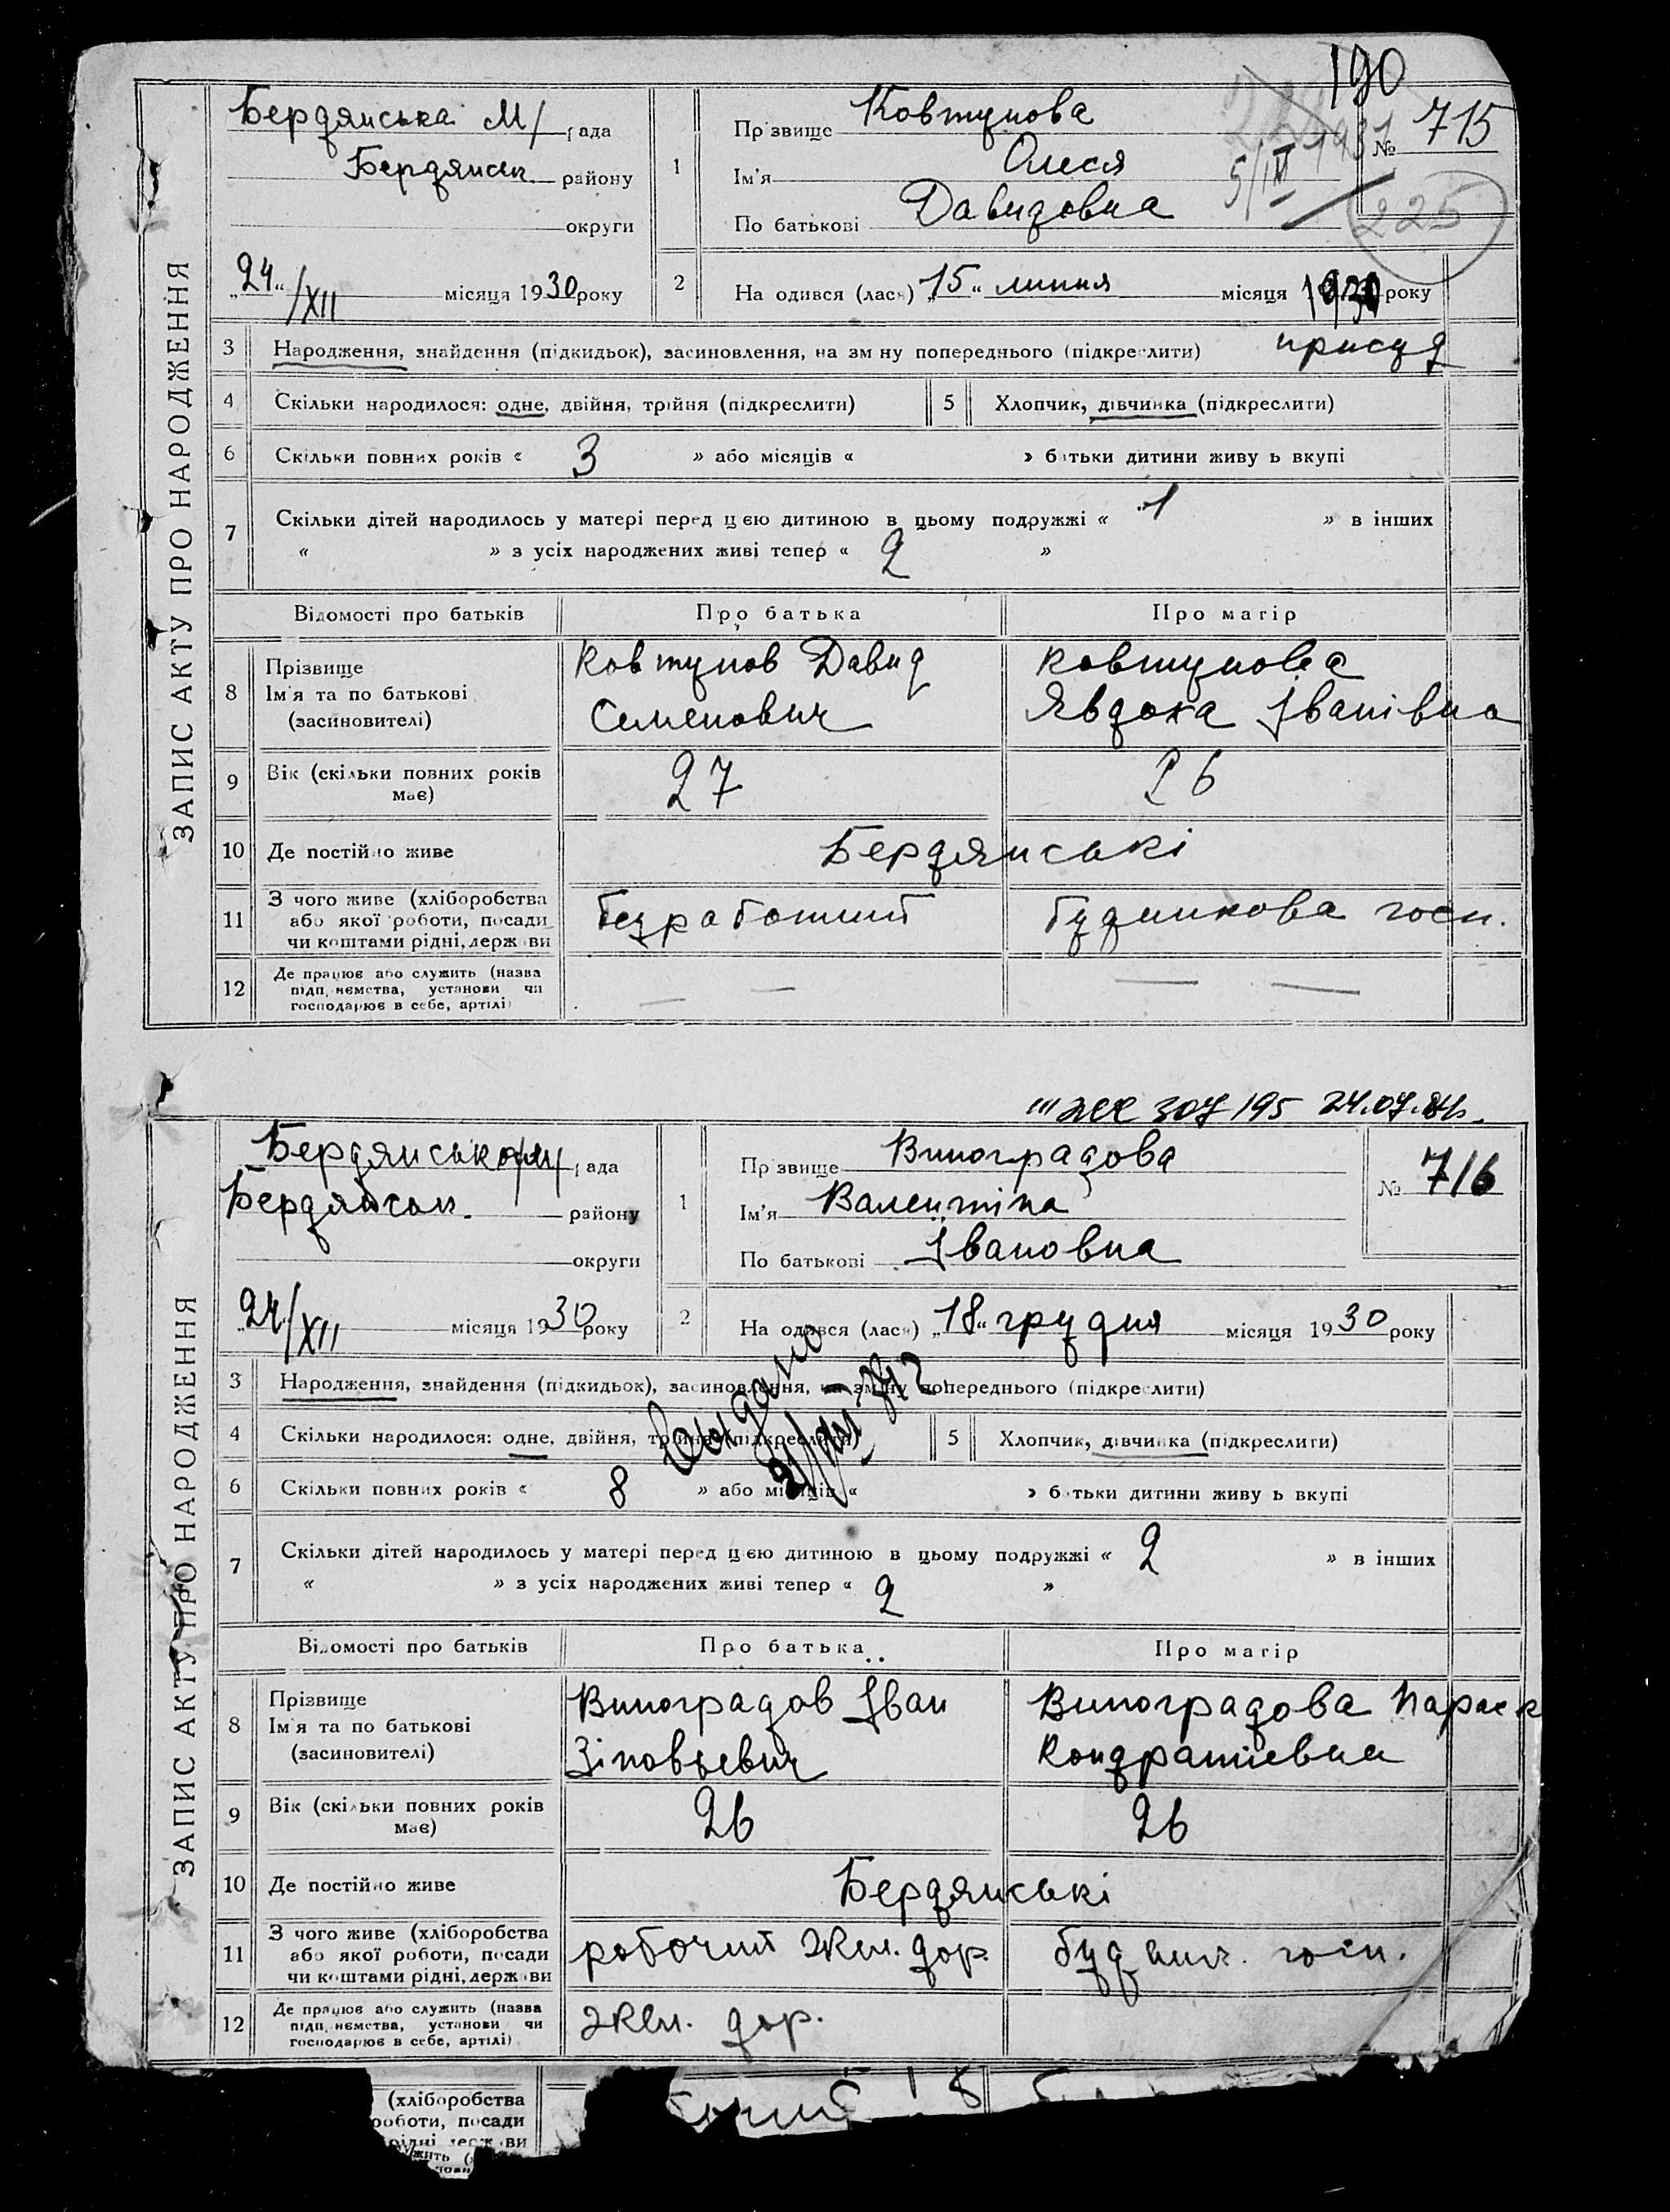 190
ЗАПИС АКТУ ПРО НАРОДЖЕННЯ
Бердянська М/ рада
Бердянськ району
округи
„24“/XII місяця 1930 року
1
Прізвище Ковтунова
Ім'я Олеся
По батькові Давидовна
№ 715
5/IV 1931
225
2 На одився (лась) „15“ липня місяця 1930 року
3 Народження, знайдення (підкидьок), засиновлення, на зм ну попереднього (підкреслити) присуд
4 Скільки народилося: одне, двійня, трійня (підкреслити) 5 Хлопчик, дівчинка (підкреслити)
6 Скільки повних років « 3 » або місяців « » батьки дитини живу ь вкупі
7 Скільки дітей народилось у матері перед цією дитиною в цьому подружжі « 1 » в інших
« » з усіх народжених живі тепер « 2 »
Відомості про батьків Про батька Про матір
8 Прізвище
Ім'я та по батькові
(засиновителі)
Ковтунов Давид
Семенович
Ковтунова
Явдоха Іванівна
9 Вік (скільки повних років
має) 27 26
10 Де постійно живе Бердянські
11 З чого живе (хліборобства
або якої роботи, посади
чи коштами рідні, держави
безработний будинкова госп.
12 Де працює або служить (назва
підп иємства, установи чи
господарює в себе, артілі)
— — — —
307195 24.07.
ЗАПИС АКТУ ПРО НАРОДЖЕННЯ
Бердянська м/ рада
Бердянськ району
округи
„24/XII місяця 1930 року
1
Прізвище Виноградова
Ім'я Валентіна
По батькові Івановна
№ 716
2 На одився (лась) „18“ грудня місяця 1930 року
3 Народження, знайдення (підкидьок), засиновлення, на зміну попереднього (підкреслити)
4 Скільки народилося: одне, двійня, трійня (підкреслити) 5 Хлопчик, дівчинка (підкреслити)
Выдано
6 Скільки повних років « 8 » або місяців « » батьки дитини живу ь вкупі
7 Скільки дітей народилось у матері перед цією дитиною в цьому подружжі « 2 » в інших
« » з усіх народжених живі тепер « 2 »
Відомості про батьків Про батька Про матір
8 Прізвище
Ім'я та по батькові
(засиновителі)
Виноградов Іван
Зіновьевич
Виноградова Параск
Кондратіевна
9 Вік (скільки повних років
має) 26 26
10 Де постійно живе Бердянські
11 З чого живе (хліборобства
або якої роботи, посади
чи коштами рідні, держави
робочий жел. дор. будинк. госп.
12 Де працює або служить (назва
підп иємства, установи чи
господарює в себе, артілі)
жел. дор.
(хліборобства
роботи, посади
рідні держ ви